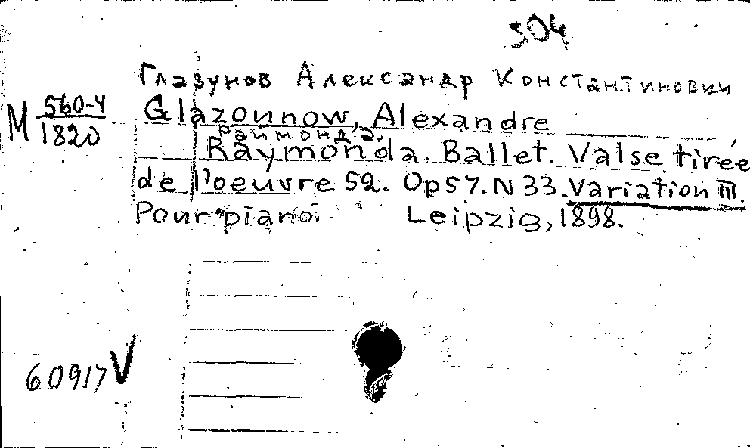 304
Глазунов Александр Константинович
M 560-4/1820
Glazounow, Alexandre
Раймонда.
Raymonda. Ballet. Valse tirée
de l'oeuvre 52. Op 57. N 33. Variation III.
Pour piano. Leipzig, 1898.
60917 V